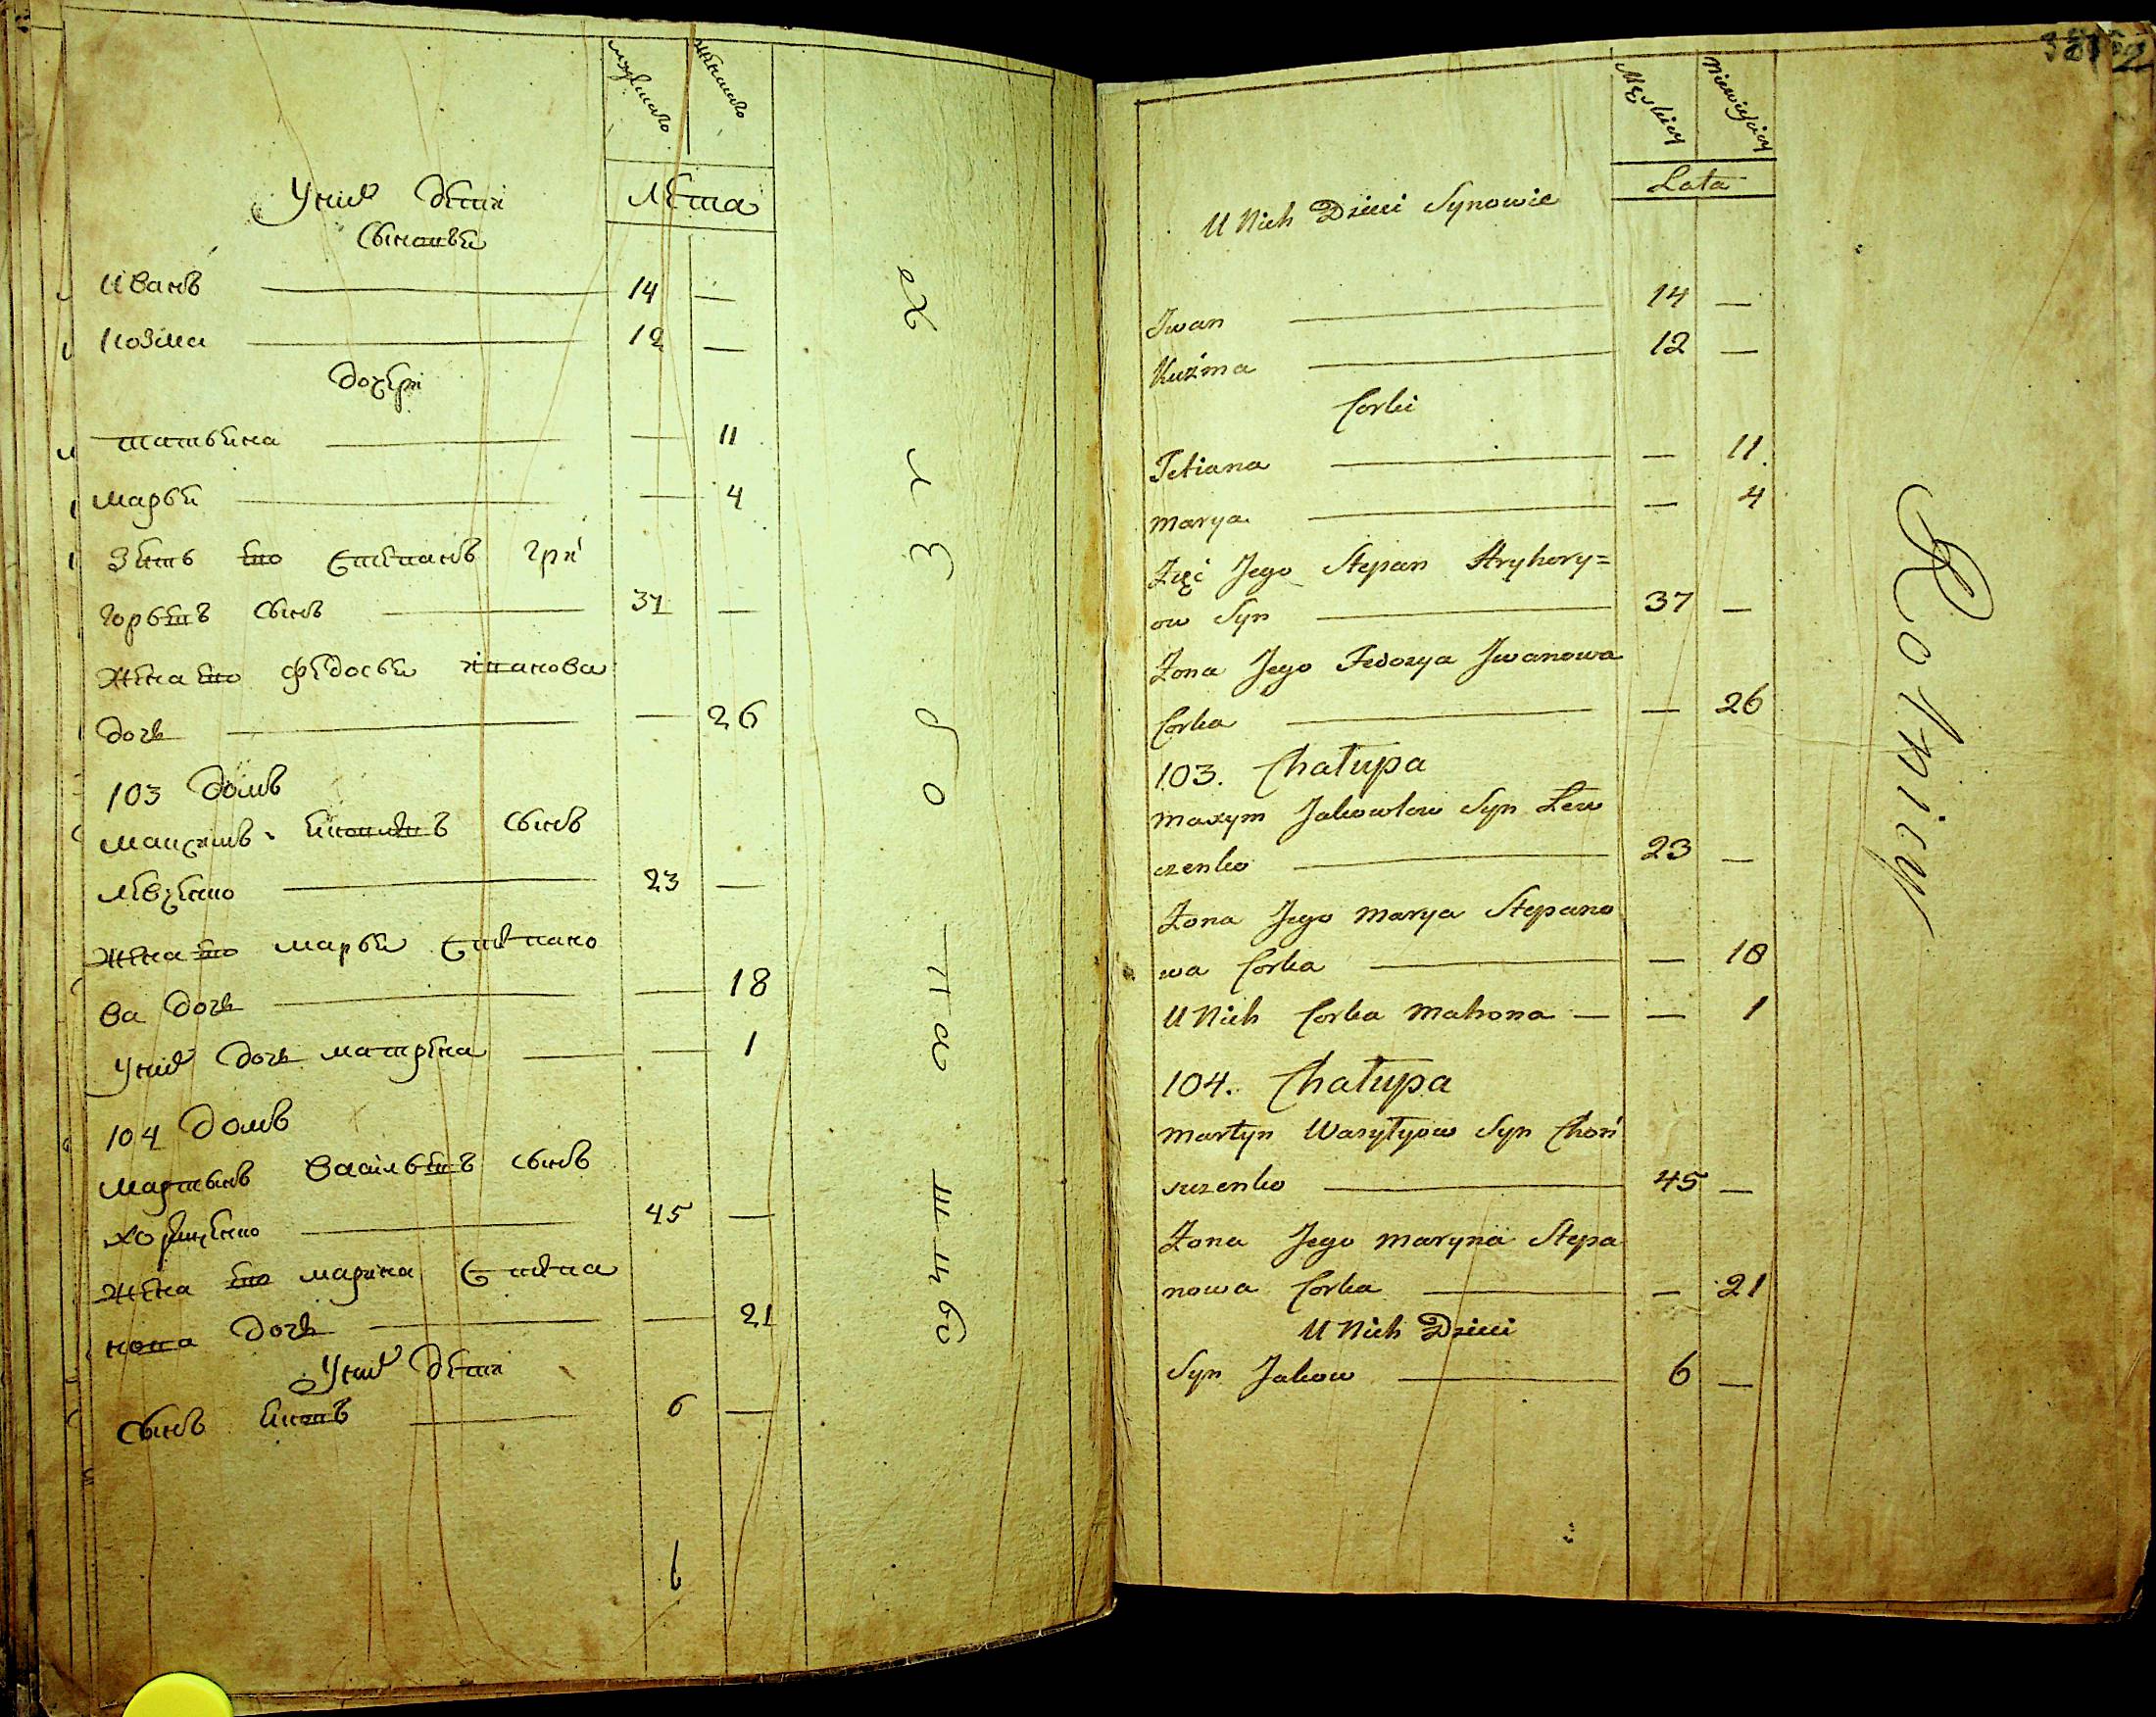 мужеска
женска
У них дети
Лета
Сыновья
Иванъ 14 —
Козма 12 —
дочери
Татьяна — 11
Марья — 4
Зять его Степанъ Гри
горьевъ сынъ 37 —
Жена его Федосья Иванова
дочь — 26
103 домъ
Максимъ Яковлевъ сынъ
Левченко 23 —
Жена его Марья Степано
ва дочь — 18
У них дочь Матрена — 1
104 домъ
Мартынъ Васильевъ сынъ
— 45 —
Жена его Марина Степа
нова дочь — 21
У них дети
Сынъ Яковъ 6 —
хлзбопашцы
Męskiey
Niewieściey
Lata
U Nich Dzieci Synowie
Jwan 14 —
Kuźma 12 —
Corki
Tetiana — 11.
Marya — 4
Zięć Jego Stepan Hryhory=
ow Syn 37 —
Żona Jego Fedosya Jwanowa
Corka — 26
103. Chałupa
Maxym Jakowlow Syn Lew
czenko 23 —
Żona Jego Marya Stepano
wa Corka — 18
U Nich Corka Matrona — — 1
104. Chałupa
Martyn Wasylyow Syn Choń
suzenko 45 —
Żona Jego Maryna Stepa
nowa Corka — 21
U Nich Dzieci
Syn Jakow 6 —
Rolnicy